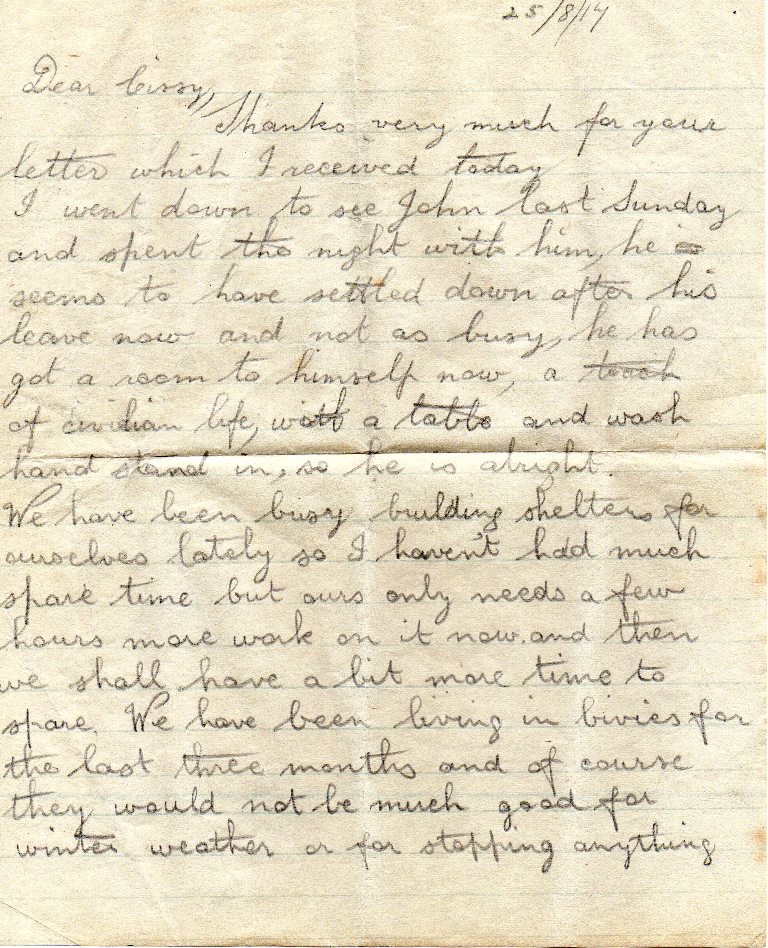 25/8/17
Dear Cissy,
Thanks very much for your
letter which I received today
I went down to see John last Sunday
and spent the night with him, he
seems to have settled down after his
leave now and not as busy, he has
got a room to himself now, a touch
of civilian life, with a table and wash
hand stand in, so he is alright.
We have been busy building shelters for
ourselves lately so I haven't had much
spare time but ours only needs a few
hours more work on it now. and then
we shall have a bit more time to
spare. We have been living in bivies for
the last three months and of course
they would not be much good for
winter weather or for stopping anything